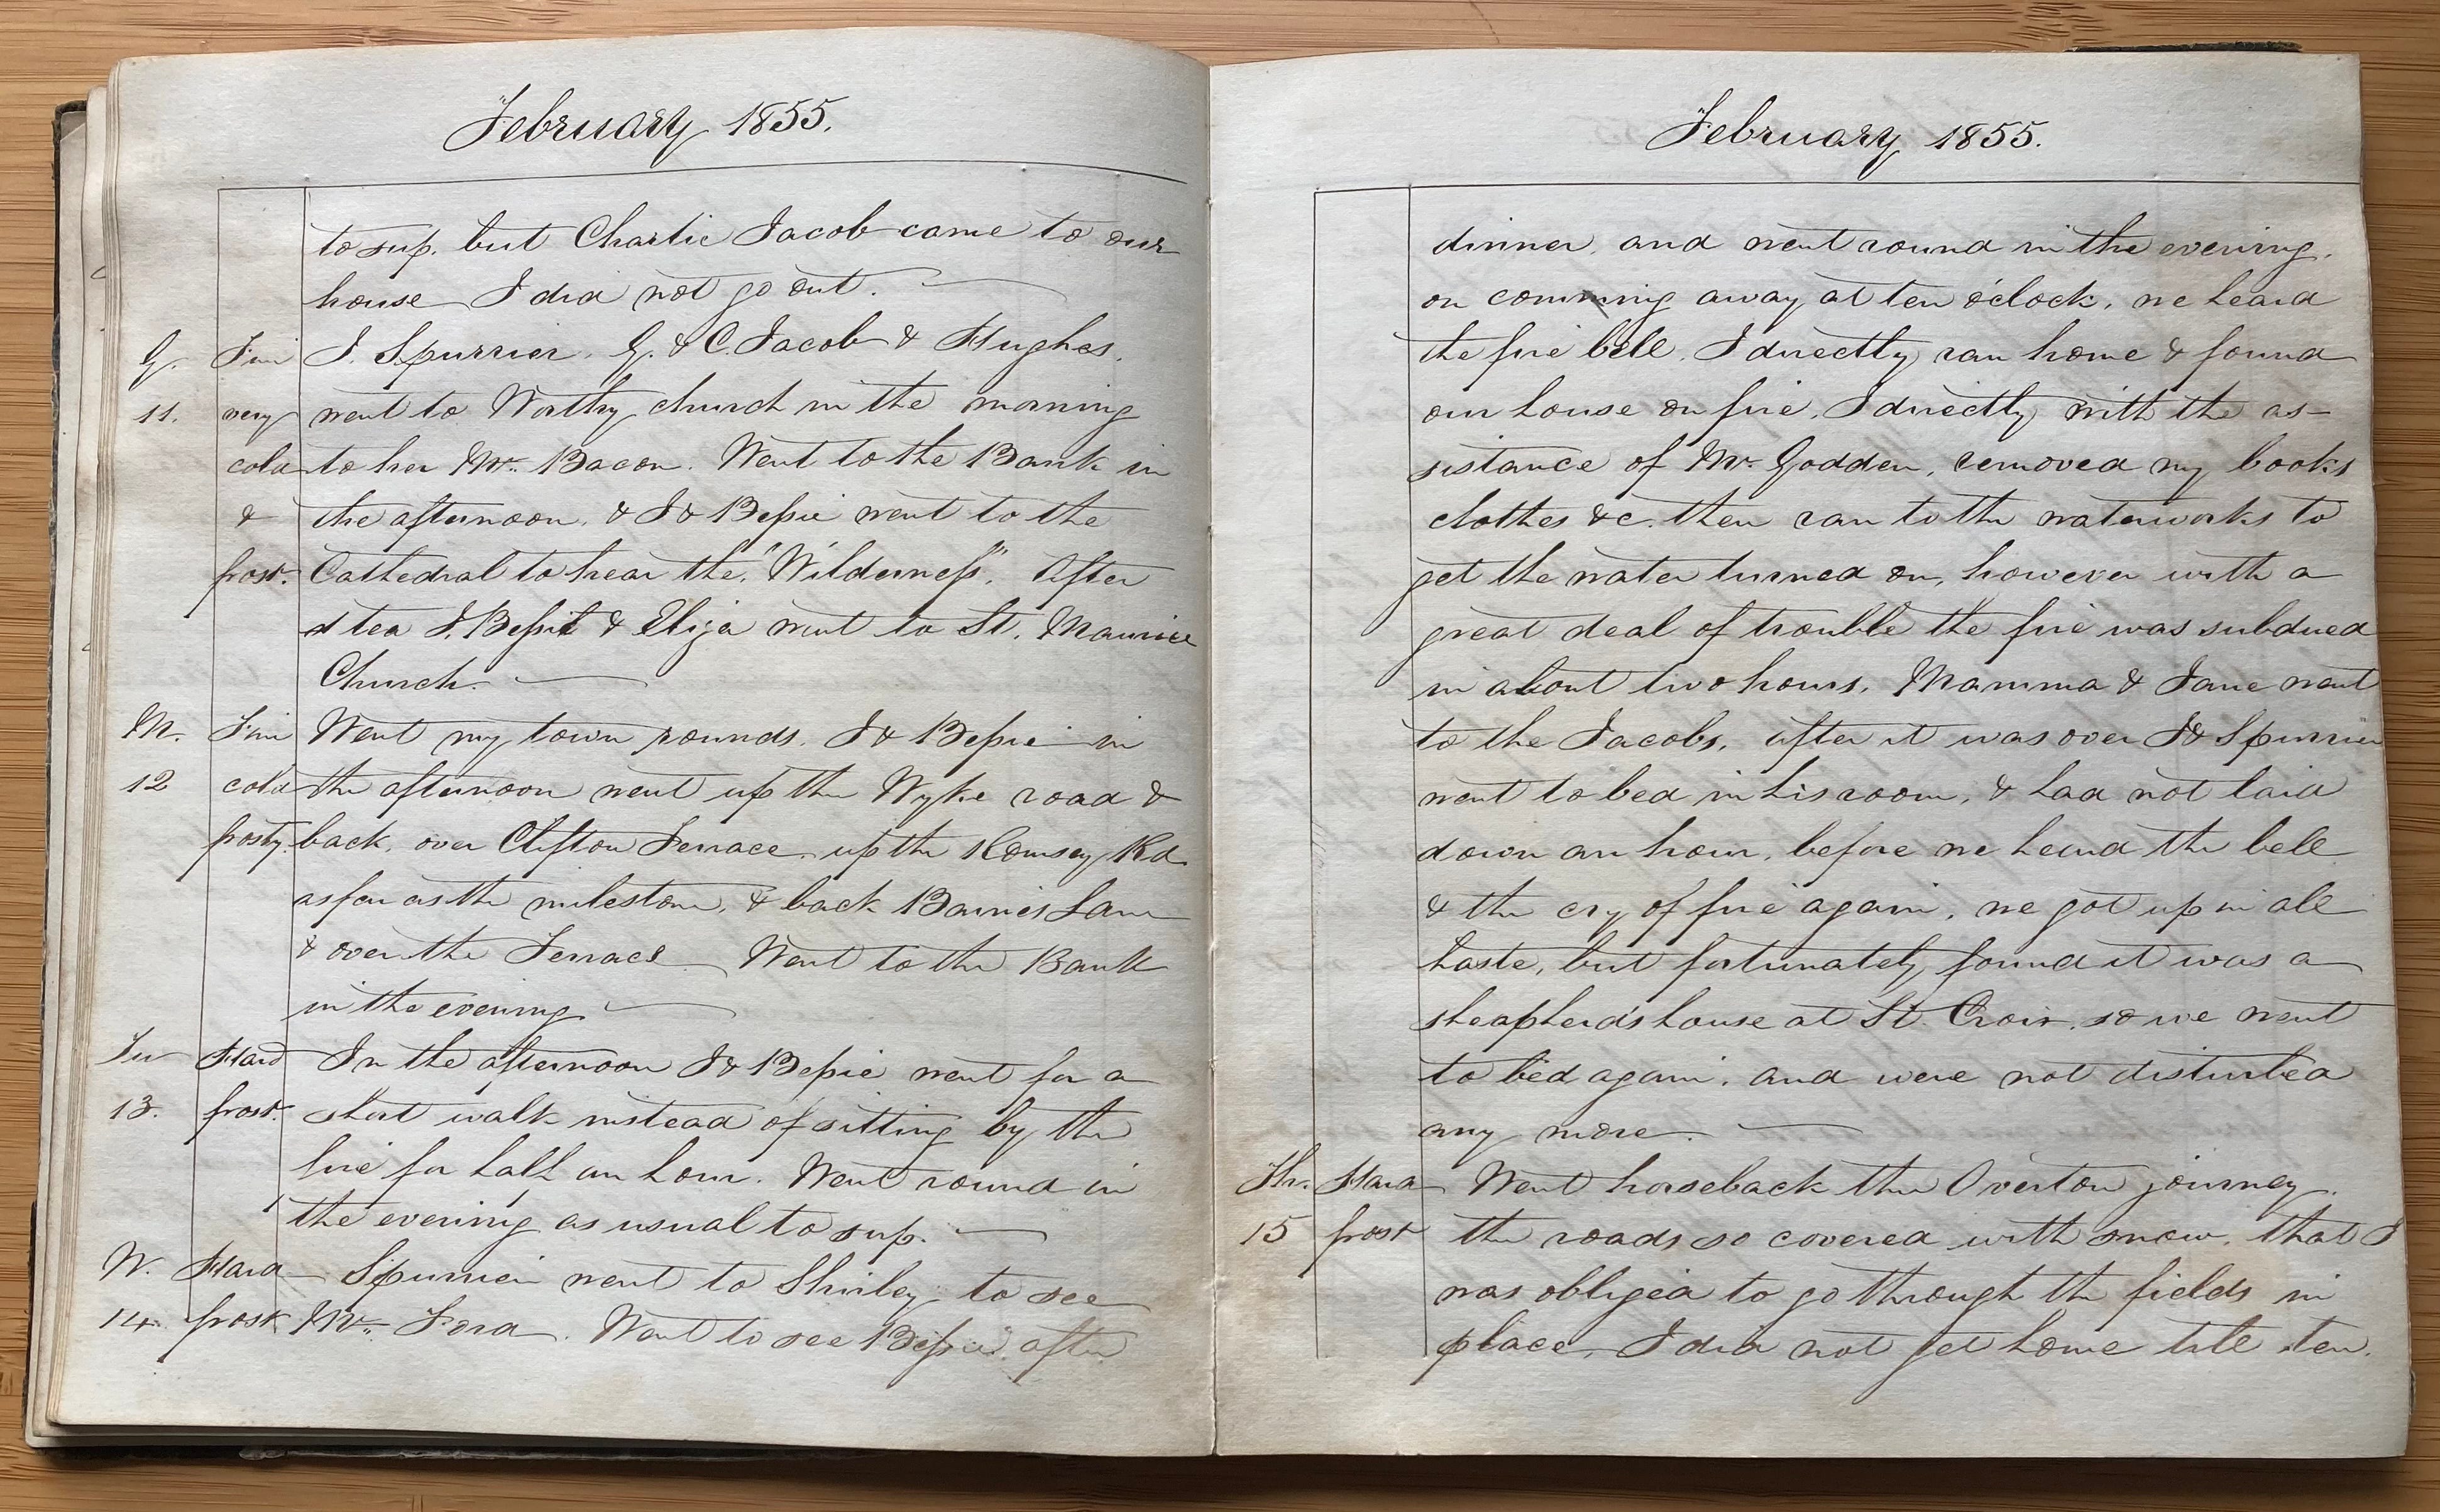 February 1855.
to sup. but Charlie Jacob came to our
house I did not go out.
G. Fine J. Spurrier. G. & C. Jacob & Hughes.
11. very went to Worthy church in the morning
cold to hear Mr. Bacon. Went to the Bank in
& the afternoon, & I & Bessie went to the
frost. Cathedral to hear the "Wilderness". After
tea I, Bessie & Eliza went to St. Maurice
Church.
M. Fine Went my town rounds. I & Bessie in
12 cold the afternoon went up the Wyke road &
frosty. back, over Clifton Terrace, up the Romsey Rd
as far as the milestone, & back Barnes Lane
& over the Terrace Went to the Bank
in the evening.
Tu Hard In the afternoon I & Bessie went for a
13. frost. short walk instead of sitting by the
fire for half an hour. Went round in
the evening as usual to sup.
W. Hard Spurrier went to Shirley, to see
14. frost Mr. Ford. Went to see Bessie after
February 1855.
dinner, and went round in the evening.
on comming away at ten o'clock, we heard
the fire bell. I directly ran home & found
our house on fire, I directly with the as-
sistance of Mr. Godden, removed my books
clothes &c. then ran to the waterworks to
get the water turned on, however with a
great deal of trouble the fire was subdued
in about two hours. Mamma & Jane went
to the Jacobs, after it was over I & Spurrier
went to bed in his room, & had not laid
down an hour, before we heard the bell
& the cry of fire again, we got up in all
haste, but fortunately found it was a
sheapherd's house at St. Croix, so we went
to bed again, and were not disturbed
any more.
Th. Hard Went horseback the Overton journey.
15 frost the roads so covered with snow, that I
was obliged to go through the fields in
place, I did not get home till ten.